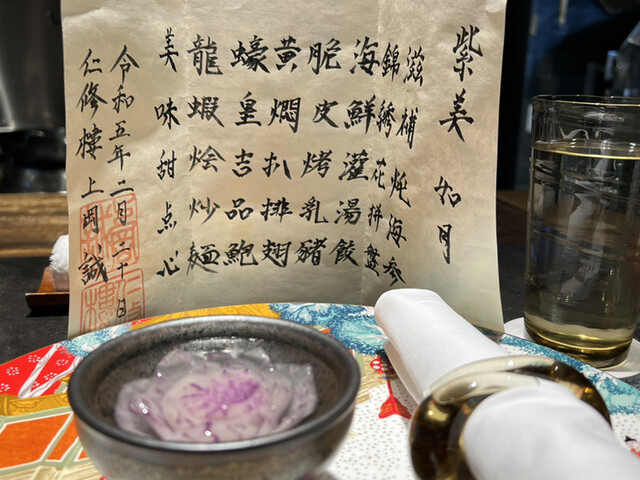 紫美 如月
滋補炖海参
錦綉花拼盤
海鮮灌湯餃
脆皮烤乳豬
黄燜扒排翅
蠔皇吉品鮑
龍蝦烩炒麺
美味甜点心
令和五年二月二十日
仁修樓上岡誠